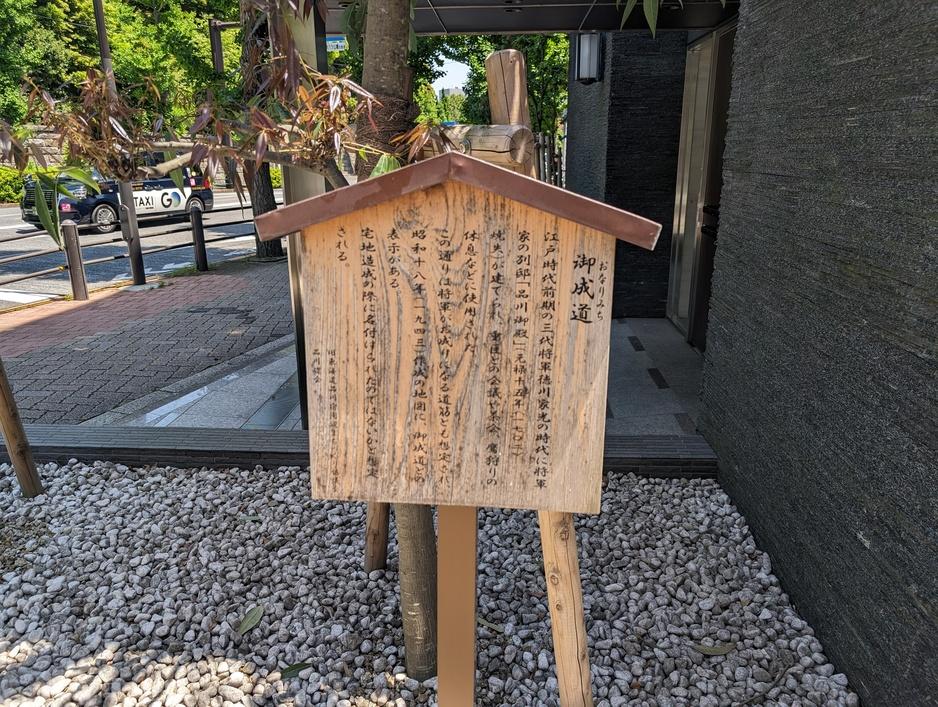 御成道
おなりみち
江戸時代前期の三代将軍徳川家光の時代に将軍
家の別邸「品川御殿」(元禄十五年(一七〇二)
焼失)が建てられ、重臣との会議や茶会、鷹狩りの
休息などに使用された。
この通りは将軍がお成りになる道筋とも想定され
昭和十八年(一九四三)作成の地図に、御成道との
表示がある。
宅地造成の際に名付けられたのではないかと想定
される。
旧東海道品川宿
品川
TAXI GO